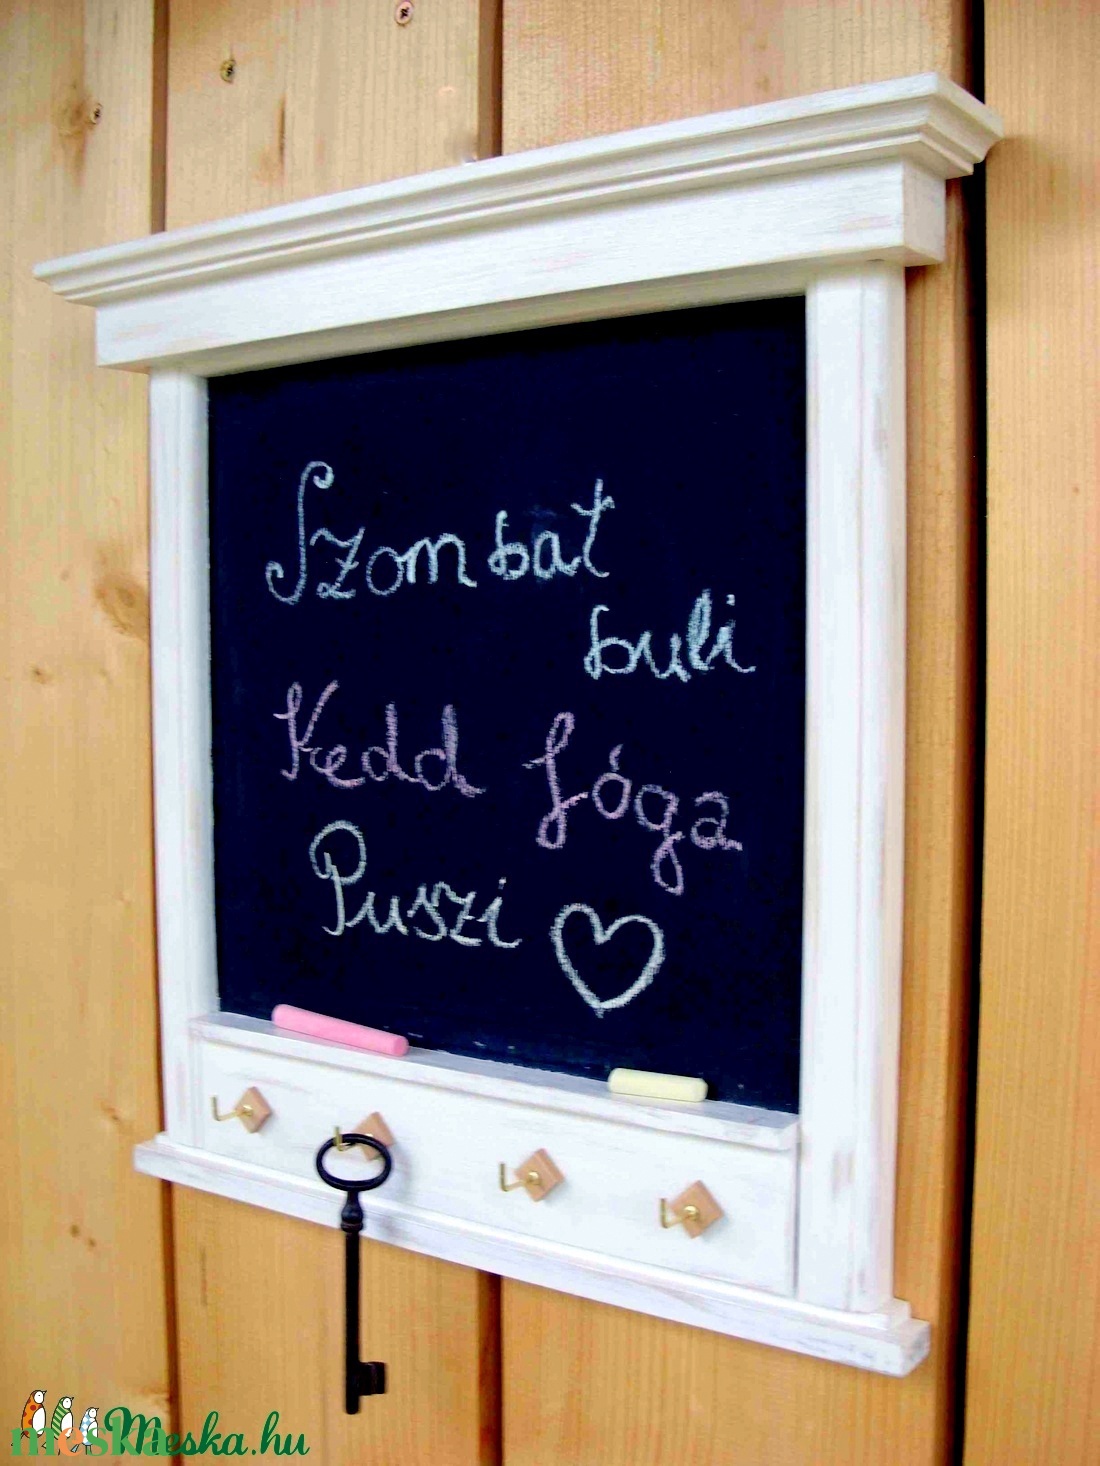 Szombat
buli
Kedd Jóga
Puszi
Meska.hu